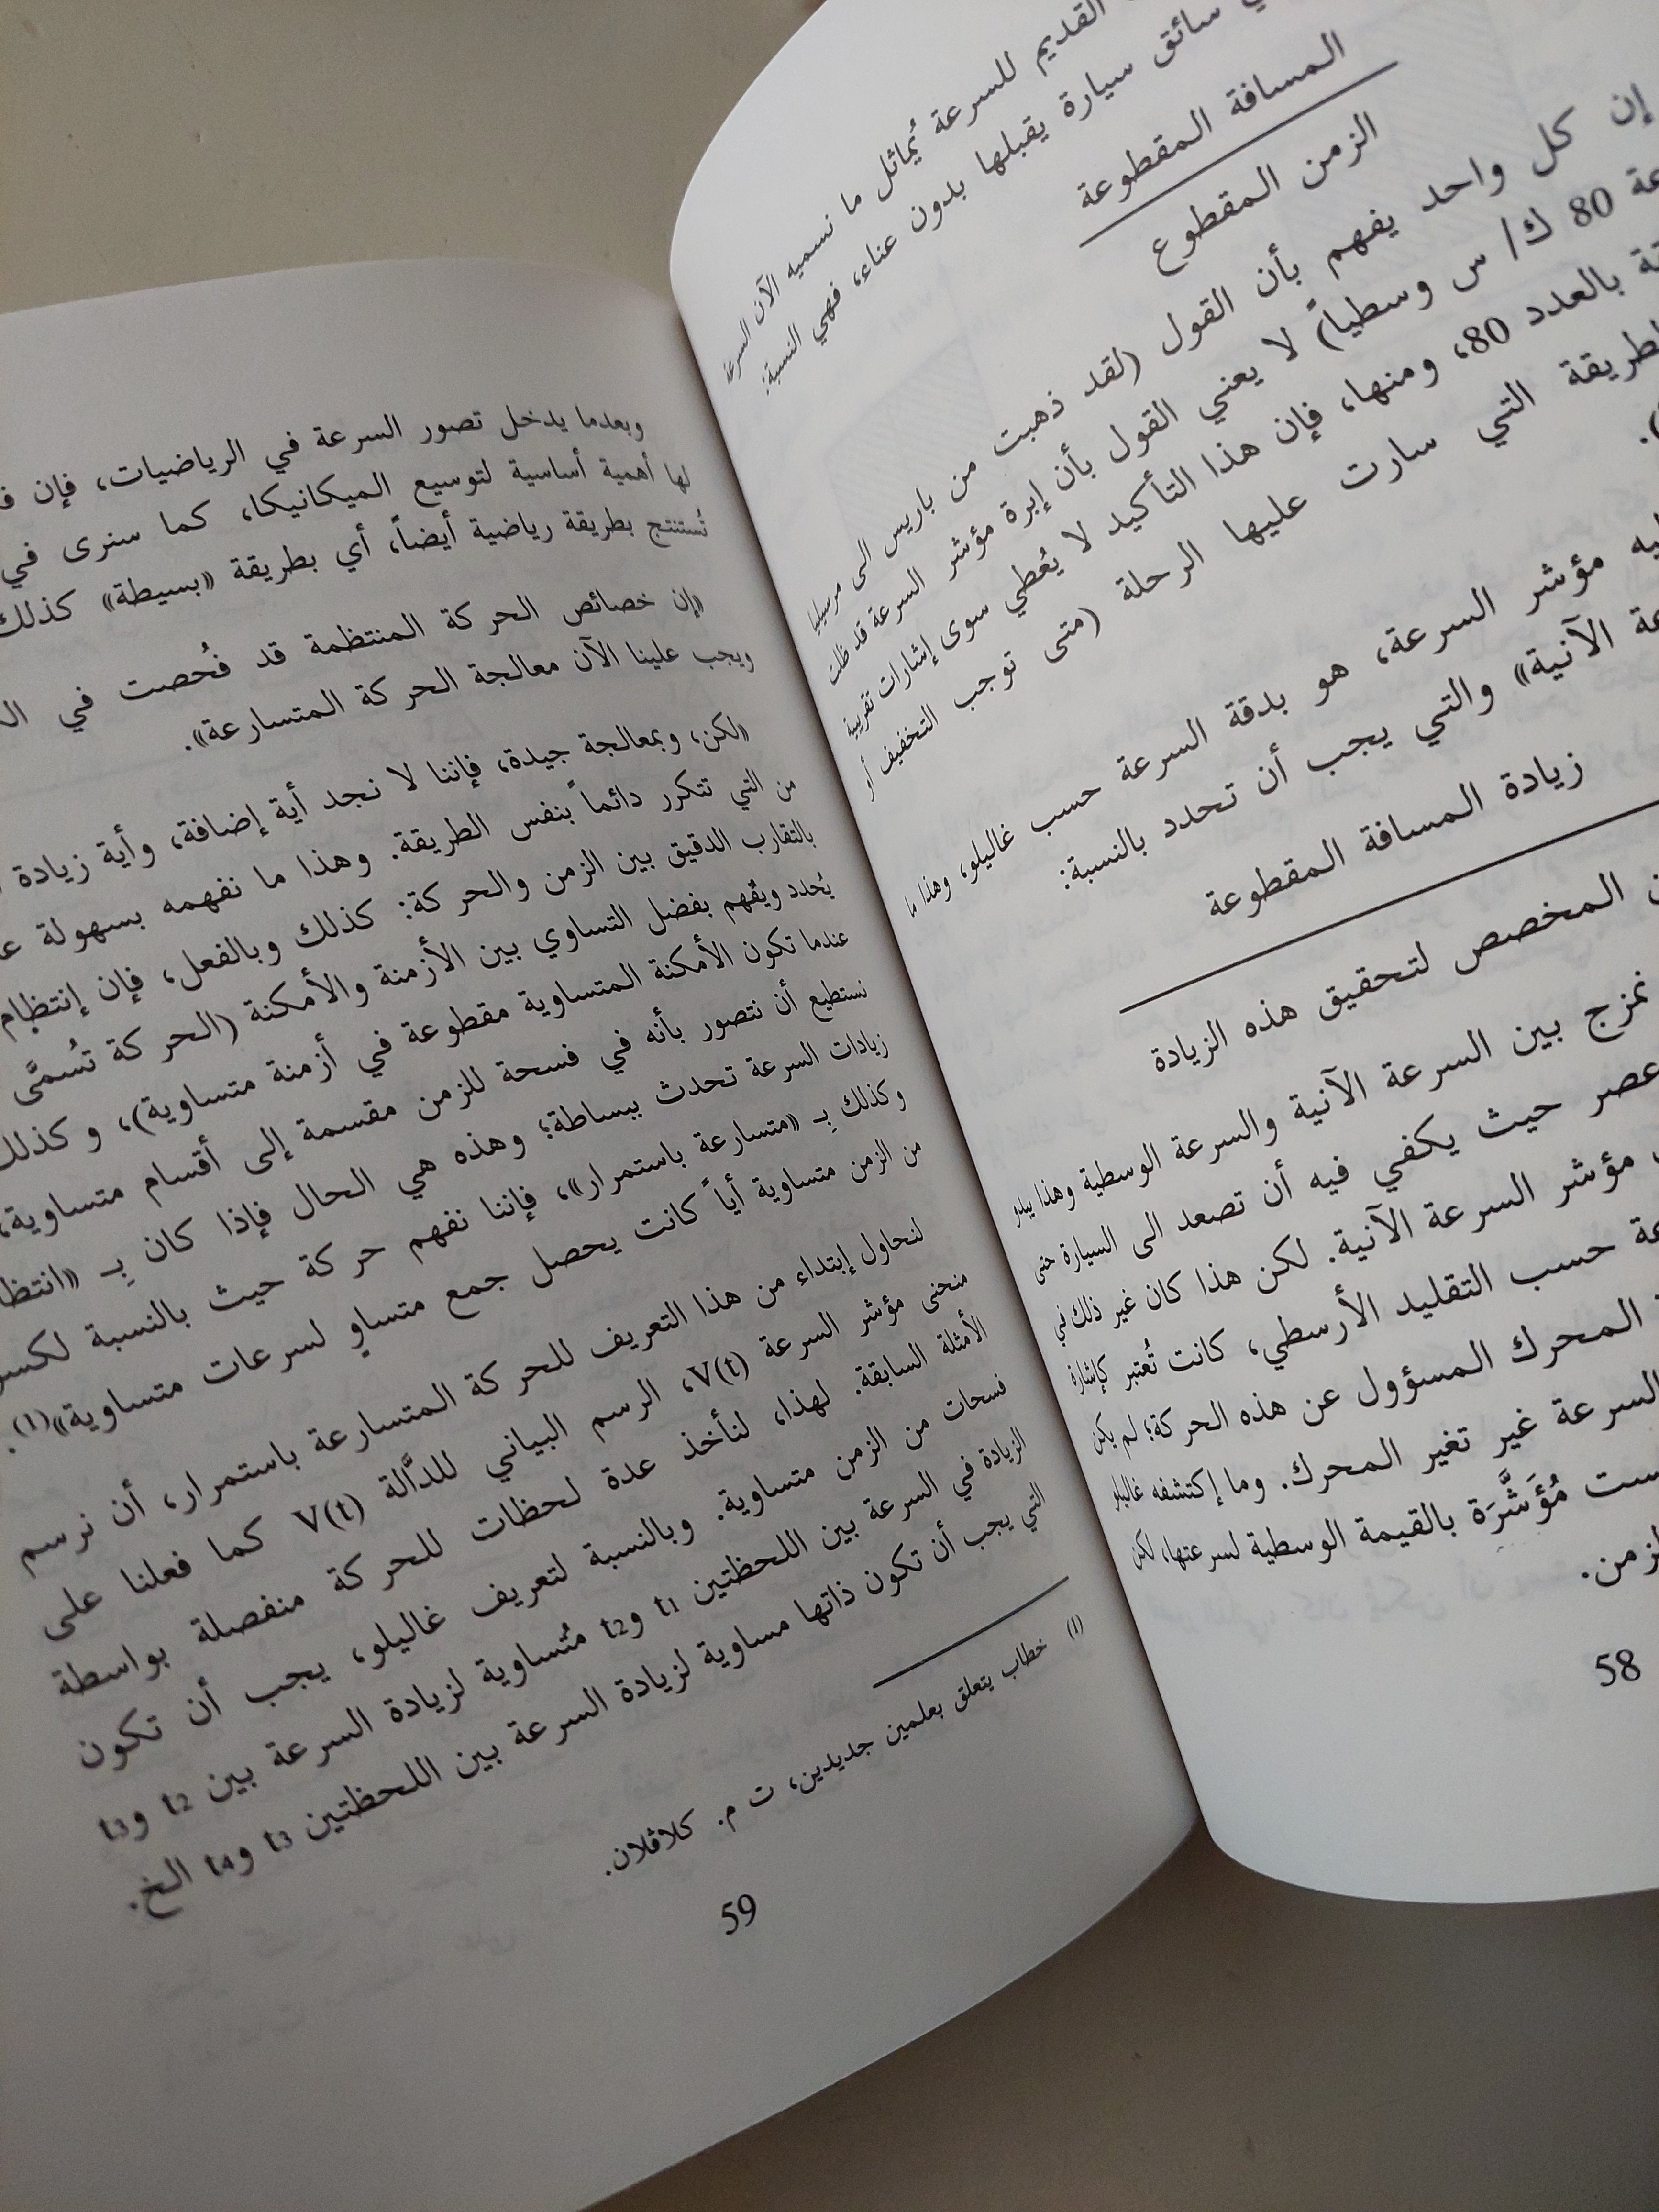 القديم للسرعة يُماثل ما نسميه الآن السرعة
سائق سيارة يقبلها بدون عناء، فهي النسبة:
المسافة المقطوعة
الزمن المقطوع
إن كل واحد يفهم بأن القول (لقد ذهبت من باريس الى مرسيليا
80 ك/ س وسطياً) لا يعني القول بأن إبرة مؤشر السرعة قد ظلت
بالعدد 80، ومنها، فإن هذا التأكيد لا يُعطي سوى إشارات تقريبية
التي سارت عليها الرحلة (متى توجب التخفيف أو
مؤشر السرعة، هو بدقة السرعة حسب غاليلو، وهذا ما
الآنية» والتي يجب أن تحدد بالنسبة:
زيادة المسافة المقطوعة
المخصص لتحقيق هذه الزيادة
نمزج بين السرعة الآنية والسرعة الوسطية وهذا يبدو
عصر حيث يكفي فيه أن تصعد الى السيارة حتى
مؤشر السرعة الآنية. لكن هذا كان غير ذلك في
حسب التقليد الأرسطي، كانت تُعتبر كإشارة
المحرك المسؤول عن هذه الحركة؛ لم يكن
السرعة غير تغير المحرك. وما إكتشفه غاليلو
مُؤَشَّرَة بالقيمة الوسطية لسرعتها، لكن
58
وبعدما يدخل تصور السرعة في الرياضيات، فإن
لها أهمية أساسية لتوسيع الميكانيكا، كما سنرى في
تُستنتج بطريقة رياضية أيضاً، أي بطريقة «بسيطة» كذلك
«إن خصائص الحركة المنتظمة قد فُحصت في
ويجب علينا الآن معالجة الحركة المتسارعة».
«لكن، وبمعالجة جيدة، فإننا لا نجد أية إضافة، وأية زيادة
من التي تتكرر دائماً بنفس الطريقة. وهذا ما نفهمه بسهولة
بالتقارب الدقيق بين الزمن والحركة: كذلك وبالفعل، فإن إنتظام
يُحدد ويُفهم بفضل التساوي بين الأزمنة والأمكنة (الحركة تسُمَّى
عندما تكون الأمكنة المتساوية مقطوعة في أزمنة متساوية)، وكذلك
نستطيع أن نتصور بأنه في فسحة للزمن مقسمة إلى أقسام متساوية،
زيادات السرعة تحدث ببساطة؛ وهذه هي الحال فإذا كان بِـ
وكذلك بِـ «متسارعة باستمرار»، فإننا نفهم حركة حيث بالنسبة
من الزمن متساوية أياً كانت يحصل جمع متساوٍ لسرعات متساوية»(1).
لنحاول إبتداء من هذا التعريف للحركة المتسارعة باستمرار، أن نرسم
منحنى مؤشر السرعة V(t)، الرسم البياني للدَّالة V(t) كما فعلنا على
الأمثلة السابقة. لهذا، لنأخذ عدة لحظات للحركة منفصلة بواسطة
فسحات من الزمن متساوية. وبالنسبة لتعريف غاليلو، يجب أن تكون
الزيادة في السرعة بين اللحظتين t1 وt2 مُتساوية لزيادة السرعة بين t2 وt3
التي يجب أن تكون ذاتها مساوية لزيادة السرعة بين اللحظتين t3 وt4 الخ.
(1) خطاب يتعلق بعلمين جديدين، ت م. كلافلان.
59